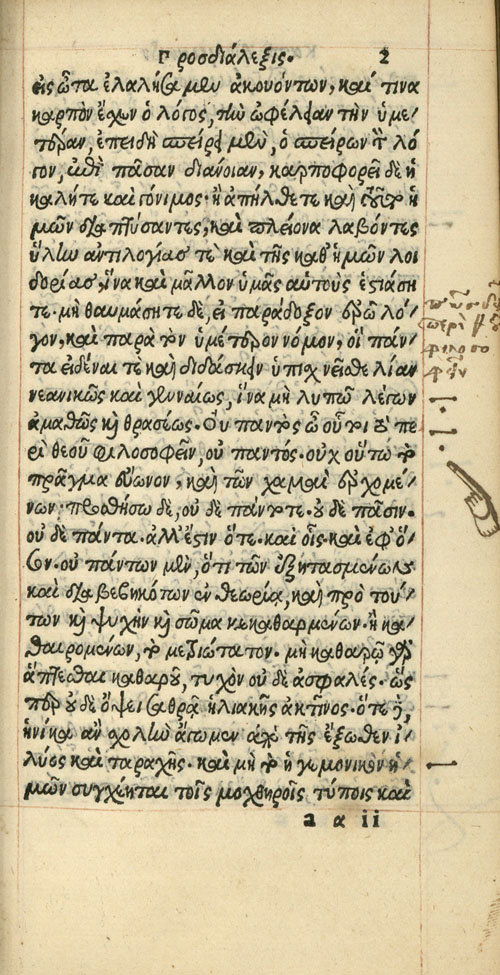 Προσδιάλεξις. 2
εἰς ὦτα ἐλαλήσαμεν ἀκουόντων, καί τινα
καρπὸν ἔχων ὁ λόγος, τὴν ὠφέλειαν τὴν ὑμε/
τέραν, ἐπειδὴ σπείρει μὲν, ὁ σπείρων τὸν λό
γον, ἐπὶ πᾶσαν διάνοιαν, καρποφορεῖ δὲ ἡ
καλήτε καὶ γόνιμος· ἢ ἀπήλθετε καὶ τοῦτο ἡ
μῶν διαπτύσαντες, καὶ πλείονα λαβόντες
ὕλην ἀντιλογίας τὲ καὶ τῆς καθ' ἡμῶν λοι
δορίας, ἵνα καὶ μᾶλλον ὑμᾶς αὐτοὺς ἑστιάση
τε· μὴ θαυμάσητε δὲ, εἰ παράδοξον ἐρῶ λό/
γον, καὶ παρὰ τὸν ὑμέτερον νόμον, οἳ πάν/
τα εἰδέναι τε καὶ διδάσκειν ὑπισχνεῖσθε λίαν
νεανικῶς καὶ γενναίως, ἵνα μὴ λυπῶ λέγων
ἀμαθῶς κὴ θρασέως. Οὐ παντὸς ὦ οὗτοι τὸ πε
ρὶ θεοῦ φιλοσοφεῖν, οὐ παντός· οὐχ οὕτω τὸ
πρᾶγμα εὔωνον, καὶ τῶν χαμαὶ ἐρχομέ/
νων· προσθήσω δὲ, οὐ δὲ πάντοτε· οὐ δὲ πᾶσιν·
οὐ δὲ πάντα· ἀλλ' ἔστιν ὅτε· καὶ οἷς· καὶ ἐφ' ὅ/
σον. οὐ πάντων μὲν, ὅτι τῶν ἐξητασμένων
καὶ διαβεβηκότων ἐν θεωρίᾳ, καὶ πρὸ τού/
των καὶ ψυχὴν καὶ σῶμα κεκαθαρμένων· ἢ κα/
θαιρομένων, τὸ μετριώτατον. μὴ καθαρῷ γὰρ
ἅπτεσθαι καθαροῦ, τυχὸν οὐ δὲ ἀσφαλές· ὥς
περ οὐ δὲ ὄψει σαθρᾷ ἡλιακῆς ἀκτῖνος· ὅτε δὲ,
ἡνίκα ἂν σχολὴν ἄγωμεν ἀπὸ τῆς ἔξωθεν ἰ/
λύος καὶ ταραχῆς· καὶ μὴ τὸ ἡγεμονικὸν ἡ/
μῶν συγχέηται τοῖς μοχθηροῖς τύποις καὶ
a α ii
περὶ
φιλοσο